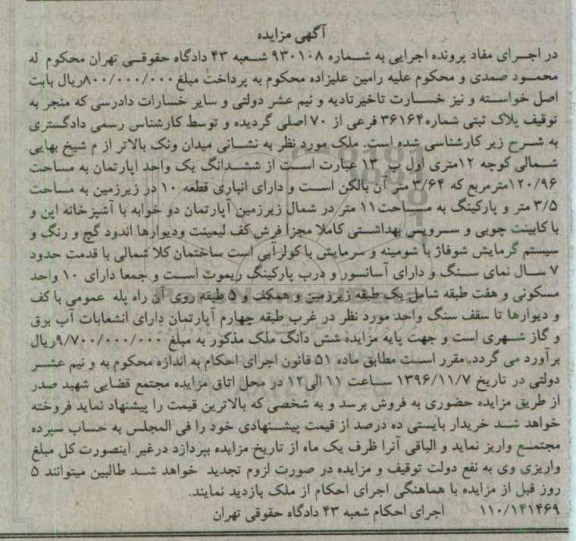 آگهی مزایده
در اجرای مفاد پرونده اجرایی به شماره ۹۳۰۱۰۸ شعبه ۴۳ دادگاه حقوقی تهران محکوم له
محمود صمدی و محکوم علیه رامین علیزاده محکوم به پرداخت مبلغ ۸۰۰/۰۰۰/۰۰۰ریال بابت
اصل خواسته و نیز خسارت تاخیرتادیه و نیم عشر دولتی و سایر خسارات دادرسی که منجر به
توقیف پلاک ثبتی شماره ۳۶۱۶۴ فرعی از ۷۰ اصلی گردیده و توسط کارشناس رسمی دادگستری
به شرح زیر کارشناسی شده است. ملک مورد نظر به نشانی میدان ونک بالاتر از م شیخ بهایی
شمالی کوچه ۱۲متری اول پ ۱۳ عبارت است از ششدانگ یک واحد اپارتمان به مساحت
۱۲۰/۹۶مترمربع که ۳/۶۴ متر آن بالکن است و دارای انباری قطعه ۱۰ در زیرزمین به مساحت
۳/۵ متر و پارکینگ به مساحت ۱۱ متر در شمال زیرزمین آپارتمان دو خوابه با آشپزخانه اپن و
با کابینت چوبی و سرویس بهداشتی کاملا مجزا فرش کف لیمینت ودیوارها اندود گچ و رنگ و
سیستم گرمایش شوفاژ با شومینه و سرمایش با کولرآبی است ساختمان کلا شمالی با قدمت حدود
۷ سال نمای سنگ و دارای آسانسور و درب پارکینگ ریموت است و جمعا دارای ۱۰ واحد
مسکونی و هفت طبقه شامل یک طبقه زیرزمین و همکف و ۵ طبقه روی آن راه پله عمومی با کف
و دیوارها تا سقف سنگ واحد مورد نظر در غرب طبقه چهارم آپارتمان دارای انشعابات آب برق
و گاز شهری است و جهت پایه مزایده شش دانگ ملک مذکور به مبلغ ۹/۷۰۰/۰۰۰/۰۰۰ریال
برآورد می گردد.مقرر است مطابق ماده ۵۱ قانون اجرای احکام به اندازه محکوم به و نیم عشر
دولتی در تاریخ ۱۳۹۶/۱۱/۷ ساعت ۱۱ الی۱۲ در محل اتاق مزایده مجتمع قضایی شهید صدر
از طریق مزایده حضوری به فروش برسد و به شخصی که بالاترین قیمت را پیشنهاد نماید فروخته
خواهد شد خریدار بایستی ده درصد از قیمت پیشنهادی خود را فی المجلس به حساب سپرده
مجتمع واریز نماید و الباقی آنرا ظرف یک ماه از تاریخ مزایده بپردازد درغیر اینصورت کل مبلغ
واریزی وی به نفع دولت توقیف و مزایده در صورت لزوم تجدید خواهد شد طالبین میتوانند ۵
روز قبل از مزایده با هماهنگی اجرای احکام از ملک بازدید نمایند.
۱۱۰/۱۴۱۴۶۹ اجرای احکام شعبه ۴۳ دادگاه حقوقی تهران